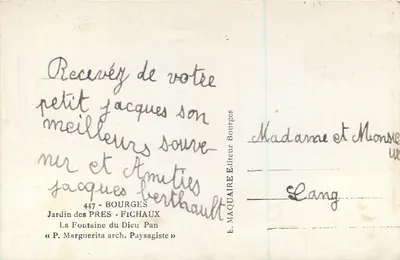 Recevéz de votre
petit jacques son
meilleurs souve-
nir et Amitiés
jacques berthault
447 - BOURGES
Jardin des PRES - FICHAUX
La Fontaine du Dieu Pan
« P. Marguerita arch. Paysagiste »
E. MAQUAIRE Editeur Bourges
Madame et Monsie
ur
Lang